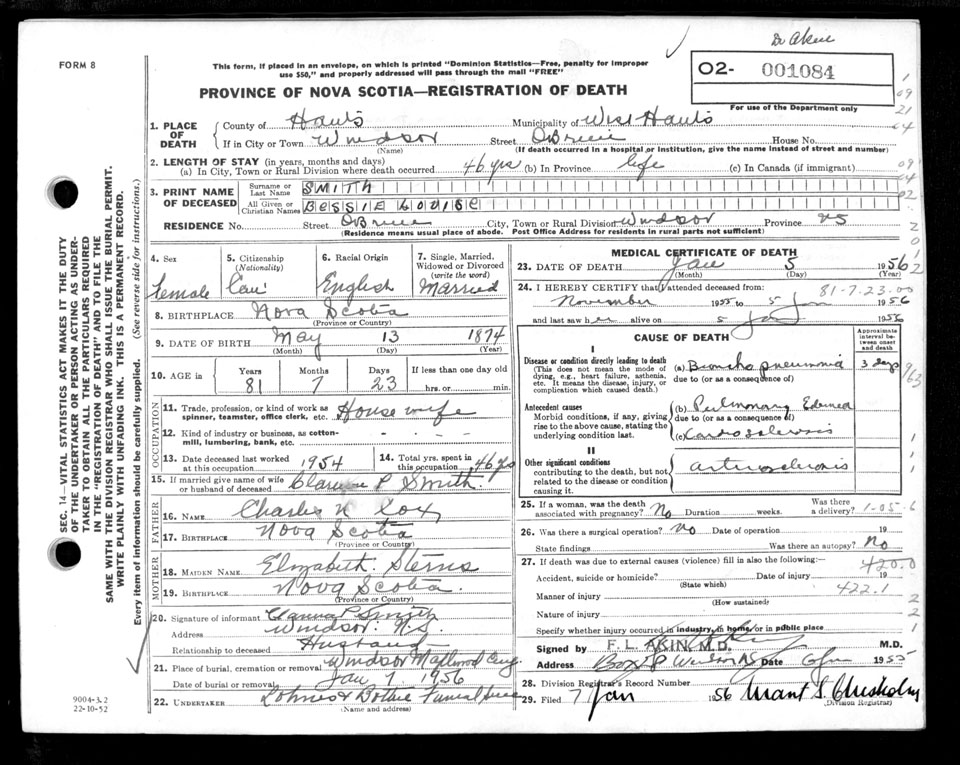 Dr Akin
FORM 8
This form, if placed in an envelope, on which is printed "Dominion Statistics—Free, penalty for improper
use $50," and properly addressed will pass through the mail "FREE"
02- 001084
For use of the Department only
PROVINCE OF NOVA SCOTIA—REGISTRATION OF DEATH
1. PLACE OF DEATH
County of Hants Municipality of West Hants
If in City or Town Windsor Street O'Brien House No.
(Name) (If death occurred in a hospital or institution, give the name instead of street and number)
2. LENGTH OF STAY (in years, months and days)
(a) In City, Town or Rural Division where death occurred 46 yrs (b) In Province life (c) In Canada (if immigrant)
3. PRINT NAME OF DECEASED
Surname or Last Name SMITH
All Given or Christian Names BESSIE LOUISE
RESIDENCE No. Street O'Brien City, Town or Rural Division Windsor Province NS
(Residence means usual place of abode. Post Office Address for residents in rural parts not sufficient)
4. Sex Female
5. Citizenship (Nationality) Can
6. Racial Origin English
7. Single, Married, Widowed or Divorced (write the word) Married
8. BIRTHPLACE Nova Scotia
(Province or Country)
9. DATE OF BIRTH May 13 1874
(Month) (Day) (Year)
10. AGE in Years 81 Months 7 Days 23 If less than one day
hrs. or min.
OCCUPATION
11. Trade, profession, or kind of work as spinner, teamster, office clerk, etc. Housewife
12. Kind of industry or business, as cotton-mill, lumbering, bank, etc.
13. Date deceased last worked at this occupation 1954
14. Total yrs. spent in this occupation 46 yrs
15. If married give name of wife or husband of deceased Clarence P Smith
FATHER
16. NAME Charles N Cox
17. BIRTHPLACE Nova Scotia
(Province or Country)
MOTHER
18. MAIDEN NAME Elizabeth Sterns
19. BIRTHPLACE Nova Scotia
(Province or Country)
20. Signature of informant Clarence P Smith
Address Windsor N.S.
Relationship to deceased Husband
21. Place of burial, cremation or removal Windsor Maplewood Cemy
Date of burial or removal Jan 7 1956
22. UNDERTAKER Funeral
(Name and address)
MEDICAL CERTIFICATE OF DEATH
23. DATE OF DEATH Jan 5 1956
(Month) (Day) (Year)
81-7-23.00
24. I HEREBY CERTIFY that I attended deceased from:
November 1955 to 5 Jan 1956
and last saw her alive on 5 Jan 1956
CAUSE OF DEATH
Approximate interval between onset and death
I
Disease or condition directly leading to death
(This does not mean the mode of dying, e.g., heart failure, asthenia, etc. It means the disease, injury, or complication which caused death.)
(a) Broncho pneumonia 3 days
due to (or as a consequence of)
Antecedent causes
Morbid conditions, if any, giving rise to the above cause, stating the underlying condition last.
(b) Pulmonary Edema
due to (or as a consequence of)
(c) Cardiosclerosis
II
Other significant conditions
contributing to the death, but not related to the disease or condition causing it.
arteriosclerosis
25. If a woman, was the death associated with pregnancy? No Duration weeks. Was there a delivery?
26. Was there a surgical operation? No Date of operation 19
State findings Was there an autopsy? No
27. If death was due to external causes (violence) fill in also the following:
420.0
Accident, suicide or homicide? Date of injury 19
(State which)
Manner of injury 422.1
(How sustained)
Nature of injury
Specify whether injury occurred in industry, in home, or in public place
Signed by F. L. AKIN, M.D. M.D.
Address Box Windsor NS Date 6 Jan 1955
28. Division Registrar's Record Number
29. Filed 7 Jan 1956 Grant S. Chisholm
(Division Registrar)
SEC. 14—VITAL STATISTICS ACT MAKES IT THE DUTY
OF THE UNDERTAKER OR PERSON ACTING AS UNDER-
TAKER TO OBTAIN ALL THE PARTICULARS REQUIRED
IN THE "REGISTRATION OF DEATH" AND TO FILE THE
SAME WITH THE DIVISION REGISTRAR WHO SHALL ISSUE THE BURIAL PERMIT.
WRITE PLAINLY WITH UNFADING INK. THIS IS A PERMANENT RECORD.
Every item of information should be carefully supplied. (See reverse side for instructions).
9004-3.2
22-10-52